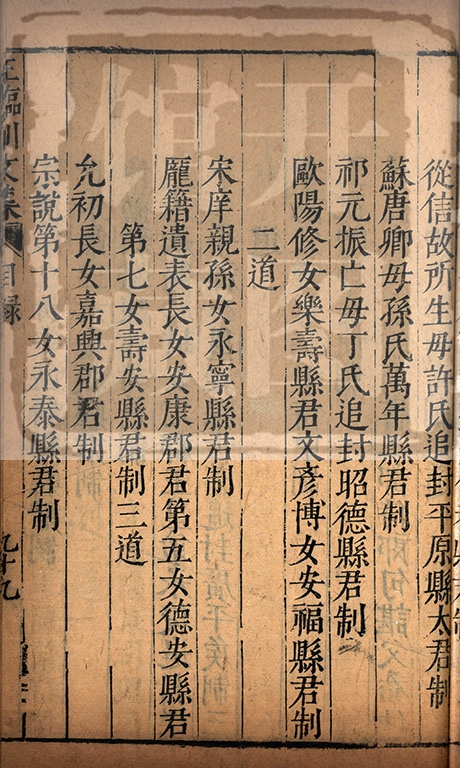 從信故所生母許氏追封平原縣太君制
蘇唐卿母孫氏萬年縣君制
祁元振亡母丁氏追封昭德縣君制
歐陽修女樂壽縣君文彥博女安福縣君制
二道
宋庠親孫女永寧縣君制
龐籍遺表長女安康郡君第五女德安縣君
第七女壽安縣君制三道
允初長女嘉興郡君制
宗說第十八女永泰縣君制
王臨川文集 目錄 九十九